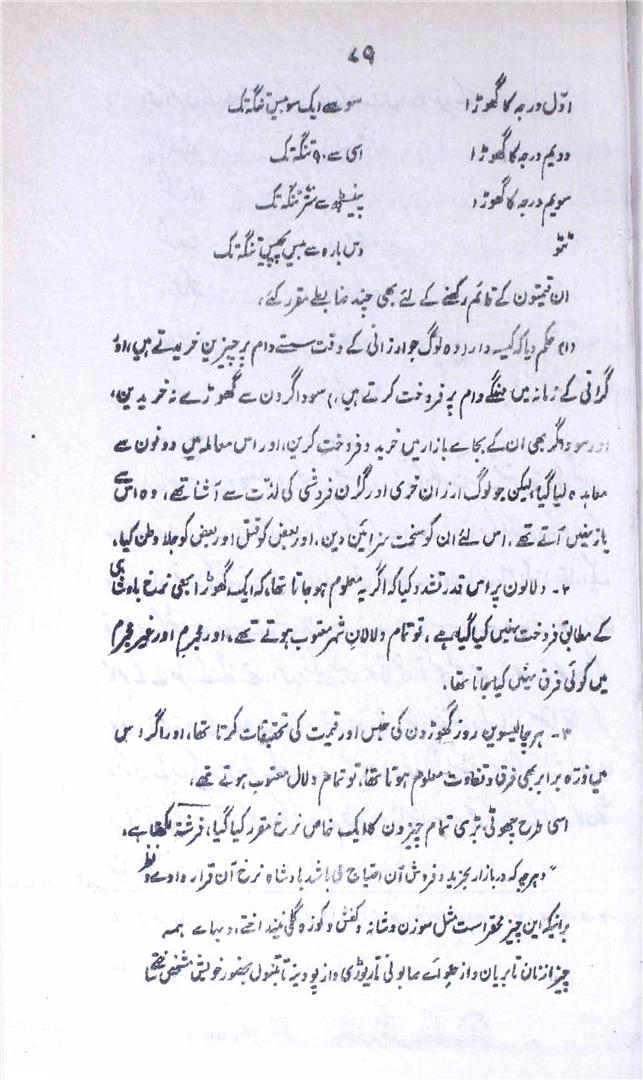 ۸۹
اوّل درجہ کا گھوڑا سو سے ایک سو بیس تنگہ تک
دویم درجہ کا گھوڑا اسی سے ۹۰ تنگہ تک
سویم درجہ کا گھوڑا پینسٹھ سے ستر تنگہ تک
ٹٹو دس بارہ سے بیس پچیس تنگہ تک
ان قیمتون کے قائم رکھنے کے لئے بھی چند ضابطے مقرر کئے،
(۱) حکم دیا کہ کیسہ دار (وہ لوگ جو ارزانی کے وقت سستے دام پر چیزین خریدتے ہیں، اور
گرانی کے زمانہ میں مہنگے دام پر فروخت کرتے ہیں،) سوداگرون سے گھوڑے نہ خریدین،
اور سوداگر بھی ان کے بجاے بازار میں خرید و فروخت کرین، اور اس معاملہ میں دونون سے
معاہدہ لیا گیا، لیکن جو لوگ ارزان خری اور گران فروشی کی لذّت سے آشنا تھے، وہ اس سے
باز نہیں آتے تھے، اس لئے ان کو سخت سزائین دین، اور بعض کو قتل اور بعض کو جلا وطن کیا،
۲۔ دلالون پر اس قدر تشدد کیا کہ اگر یہ معلوم ہو جاتا تھا، کہ ایک گھوڑا بھی نرخ بادشاہی
کے مطابق فروخت نہیں کیا گیا ہے، تو تمام دلالان شہر معتوب ہوتے تھے، اور مجرم اور غیر مجرم
میں کوئی فرق نہیں کیا جاتا تھا،
۳۔ ہر چالیسوین روز گھوڑون کی جنس اور قیمت کی تحقیقات کرتا تھا، اور اگر اس
میں ذرّہ برابر بھی فرق و تفاوت معلوم ہوتا تھا، تو تمام دلال معتوب ہوتے تھے،
اسی طرح چھوٹی بڑی تمام چیزون کا ایک خاص نرخ مقرر کیا گیا، فرشتہ لکھتا ہے،
"و ہرچہ کہ در بازار بخرید و فروش آن احتیاج می باشد بادشاہ نرخ آن قرار دادے و نظر
برانیکہ این چیز محقر است مثل سوزن و شانہ و کفش و کوزہ گلی نینداختے، و بہاے ہمہ
چیز از نان تا بریان و از حلواے صابونی تا ریوڑی و از پودینہ تا تنبول بحضور خویش مشخص